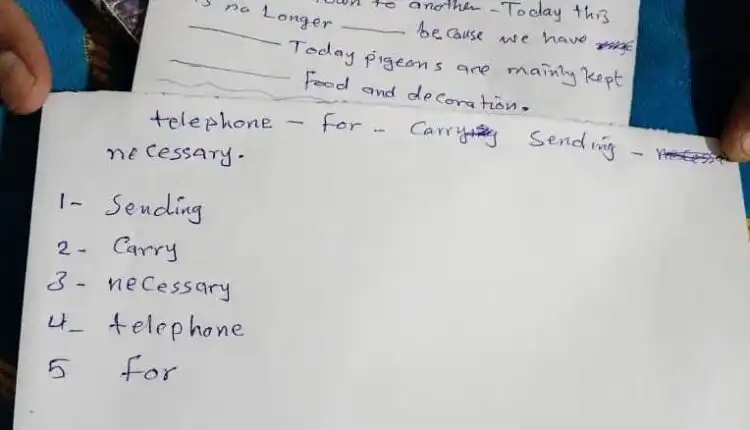 to another - Today this
is no Longer ______ because we have
______ Today pigeons are mainly kept
______ Food and decoration.
telephone - for - Carry Sending -
necessary.
1- Sending
2- Carry
3- necessary
4- telephone
5 for